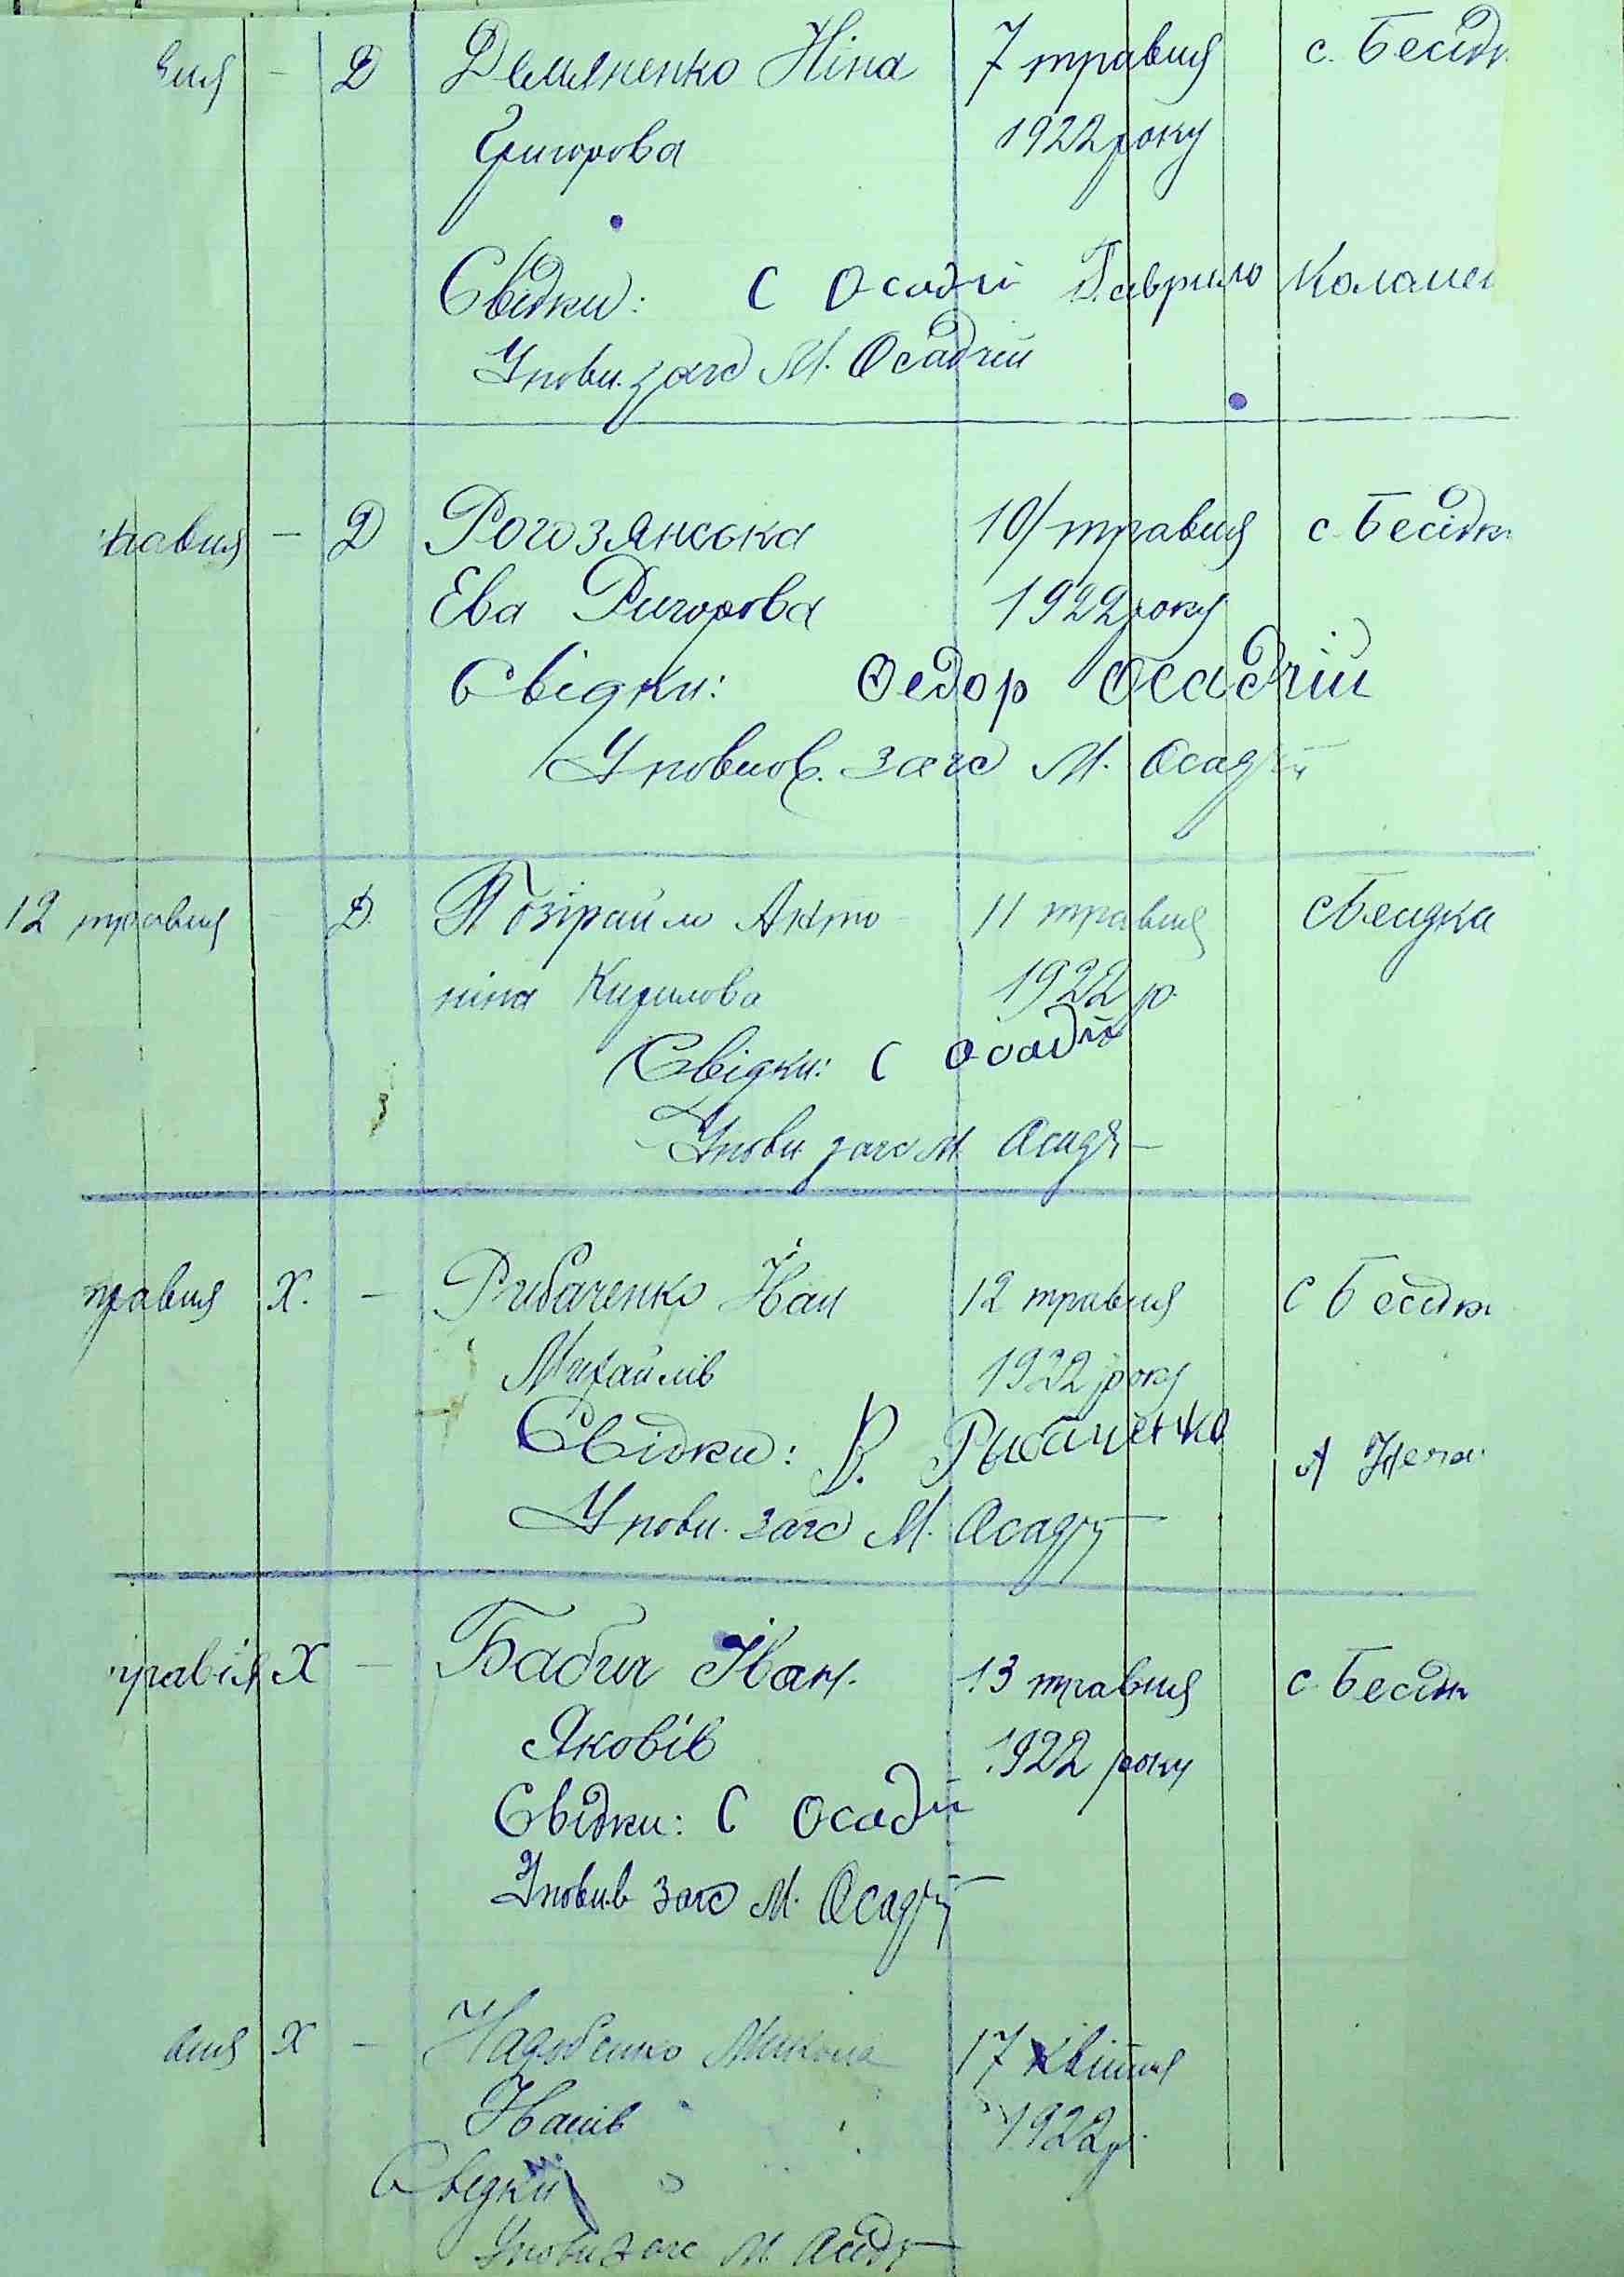 вня - Д Демяненко Ніна 7 травня с. Бесідк
Григорова 1922 року
Свідки: С Осадчі Гаврило Коломеи
Уповн. загс М. Осадчий
травня - Д Рогозянська 10/травня с. Бесідк
Ева Ригорова 1922 року
Свідки: Федор Осадчій
Уповнов. загс М. Осадчий
12 травня - Д. Позірайло Анто 11 травня с Бесидка
ніна Кирилова 1922 р.
Свідки: С Осадчій
Уповн загс М. Осадч
травня Х. - Рибаченко Іван 12 травня с Бесідк
Михайлів 1922 року
Свідки: В. Рыбаченко А
Уповн. загс М. Осадч
травня Х - Бабич Іван. 13 травня с. Бесідк
Яковів 1922 року
Свідки: С Осадчи
Уповнв загс М. Осадч
вня Х - Микола 17 квітня
Іванів 1922 р.
Сведки
Уповн загс М. Осадч